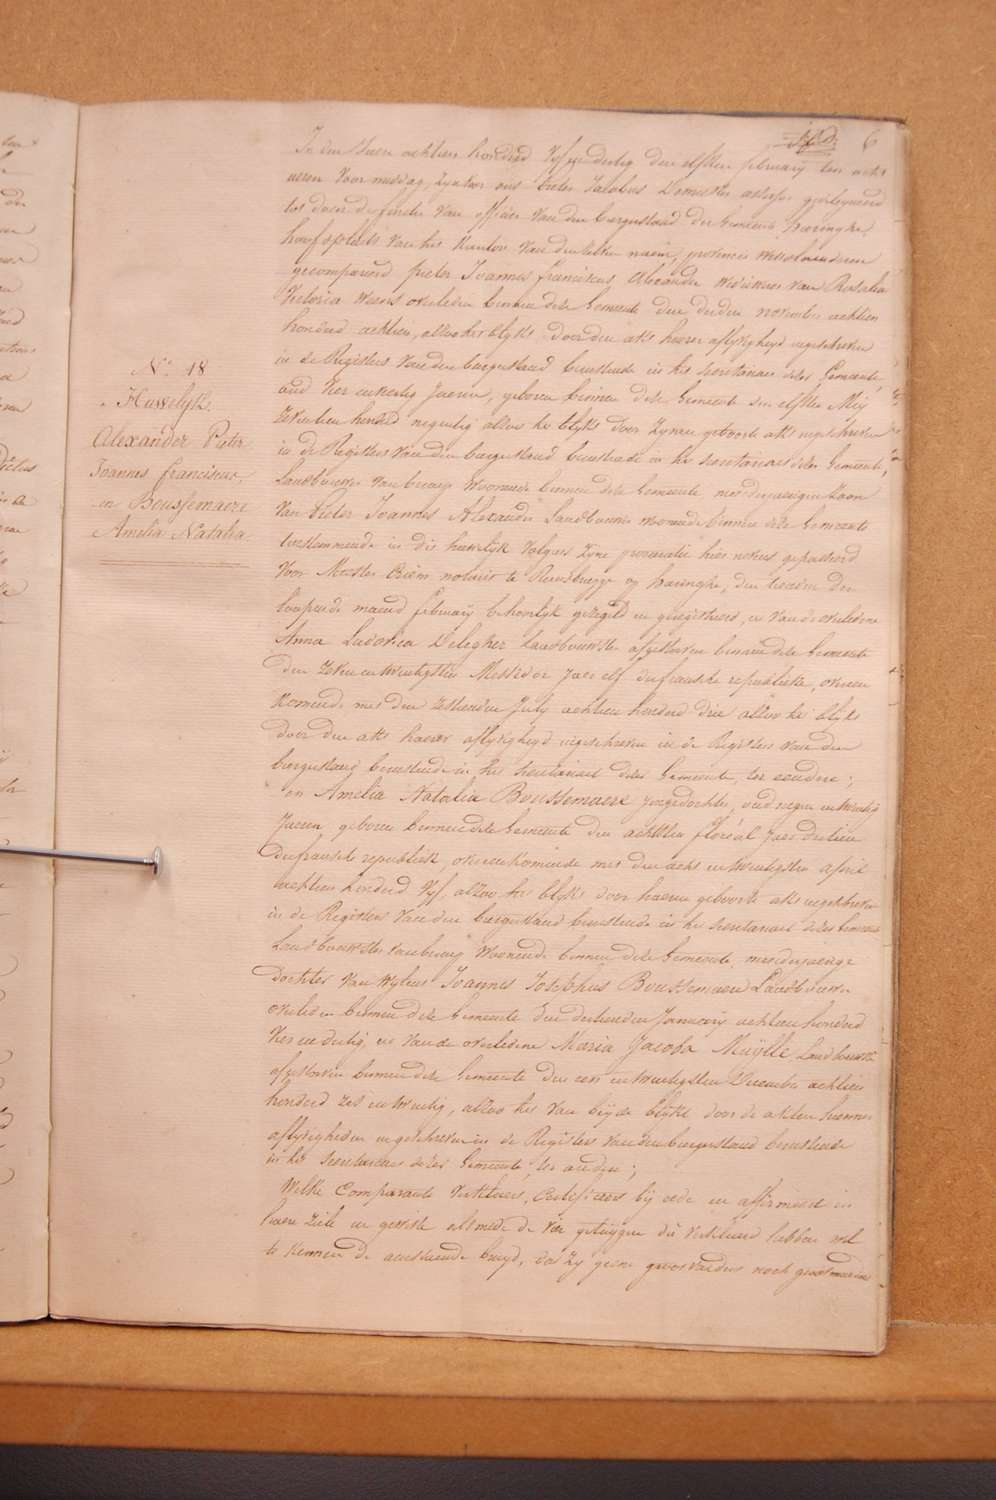 6
In den Jaere achtien honderd vyf en dertig den elfsten february ten acht
ueren voor middag, zyn voor ons Pieter Jacobus Demester gedelegueerd
tot doen der functie van officier van den burgerstand der Gemeente haeringhe,
hoofdplaets van het kanton van den zelven naem, provincie westvlaenderen
gecompareerd pieter Joannes franciscus Alexander weduwaer van Rosalia
Victoria overleden binnen deze Gemeente den derden november achtien
honderd achtien, alzoo het blykt door den akt haerer aflyvigheyd ingeschreven
in de Registers van den burgerstand berustende in het secretariaet dezer Gemeente,
oud vier en veertig Jaeren, geboren binnen deze Gemeente den elfsten Mey
zeventien honderd negentig alzoo het blykt door zynen geboorte akt ingeschreven
in de Registers van den burgerstand berustende in het secretariaet dezer Gemeente,
Landbouwer van beroep woonende binnen deze Gemeente, meerderjaerigen Zoon
van Pieter Joannes Alexander Landbouwer woonende binnen deze Gemeente
toestemmende in dit huwelyk volgens zyne procuratie hier nevens gepasseerd
voor Meester notaris te Rousbrugge op haeringhe, den
loopende maend february behoorlyk gezegeld en geregistreerd, en van de overledene
Anna Ludovica Landbouwster afgestorven binnen deze Gemeente
den zeven en twintigsten Messidor Jaer elf der fransche republieke, overeen
komende met den zestienden July achtien honderd drie alzoo het blykt
door den akt haerer aflyvigheyd ingeschreven in de Registers van den
burgerstand berustende in het secretariaet dezer Gemeente, ter eendere;
en Amelia Natalia Boussemaere jongedochter, oud negen en twintig
Jaeren, geboren binnen deze Gemeente den achtsten floréal Jaer dertien
der fransche republiek, overeenkomende met den acht en twintigsten april
achtien honderd vyf, alzoo het blykt door haeren geboorte akt ingeschreven
in de Registers van den burgerstand berustende in het secretariaet dezer Gemeente
Landbouwster van beroep woonende binnen deze Gemeente, meerderjaerige
Dochter van wylent Joannes Josephus Boussemaere Landbouwer
overleden binnen deze Gemeente den dertienden January achtien honderd
vier en dertig, en van de overledene Maria Jacoba Muylle Landbouwster
afgestorven binnen deze Gemeente den een en twintigsten December achtien
honderd zes en twintig, alzoo het van beyde blykt door de akten hunner
aflyvigheden ingeschreven in de Registers van den burgerstand berustende
in het secretariaet dezer Gemeente, ter andere;
Welke Comparante verklaert, certificeert by eede en affirmeert in
haere ziele en geweten alsmede de vier getuygen die verklaerd hebben wel
te kennen de aenstaende bruyd, dat zy geene grootvaders noch grootmoeders
No 18
Huwelyk
Alexander Pieter
Joannes franciscus,
en Boussemaere
Amelia Natalia